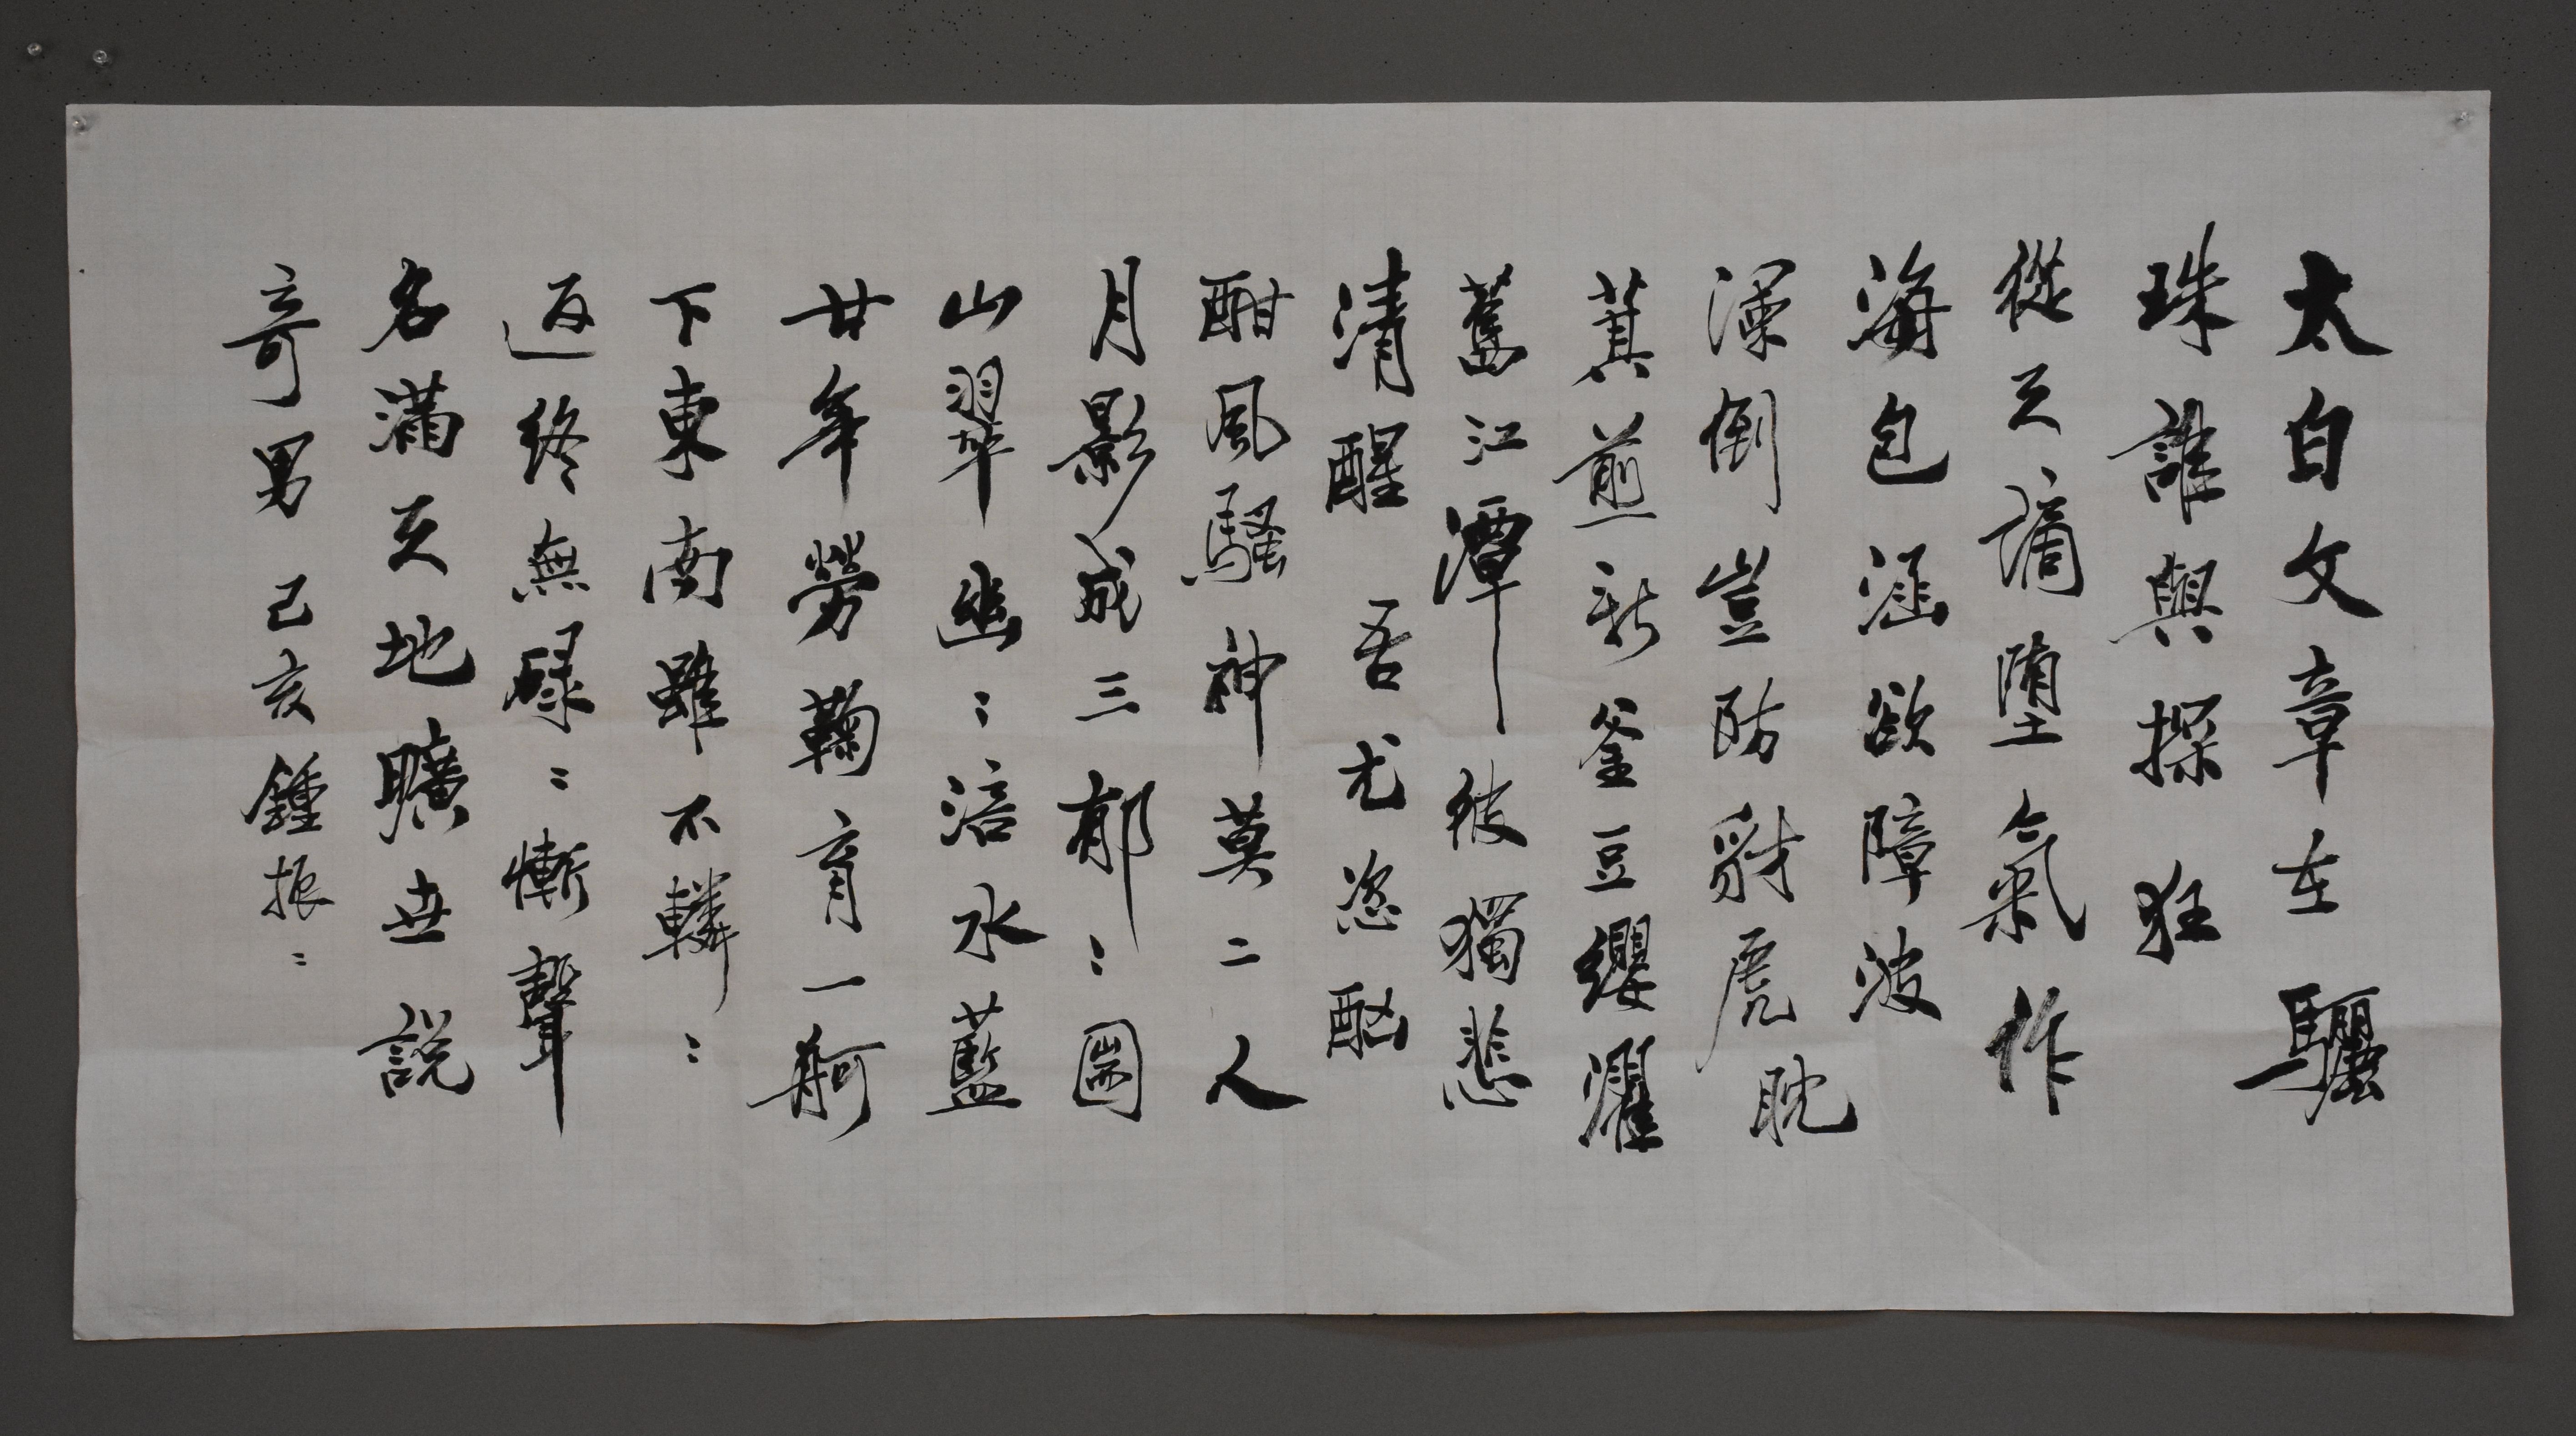 太白文章在驪
珠誰與探狂
從天謫墮氣作
海包涵欲障波
瀾倒豈防豺虎眈
萁煎新釜豆纓濯
舊江潭彼獨悲
清醒吾尤恣酗
酣風騷神莫二人
月影成三郁〻圌
山翠幽〻涪水藍
廿年勞鞠育一舸
下東南雖不轔〻
返終無碌〻慚聲
名滿天地曠世說
奇男 己亥 鍾振〻